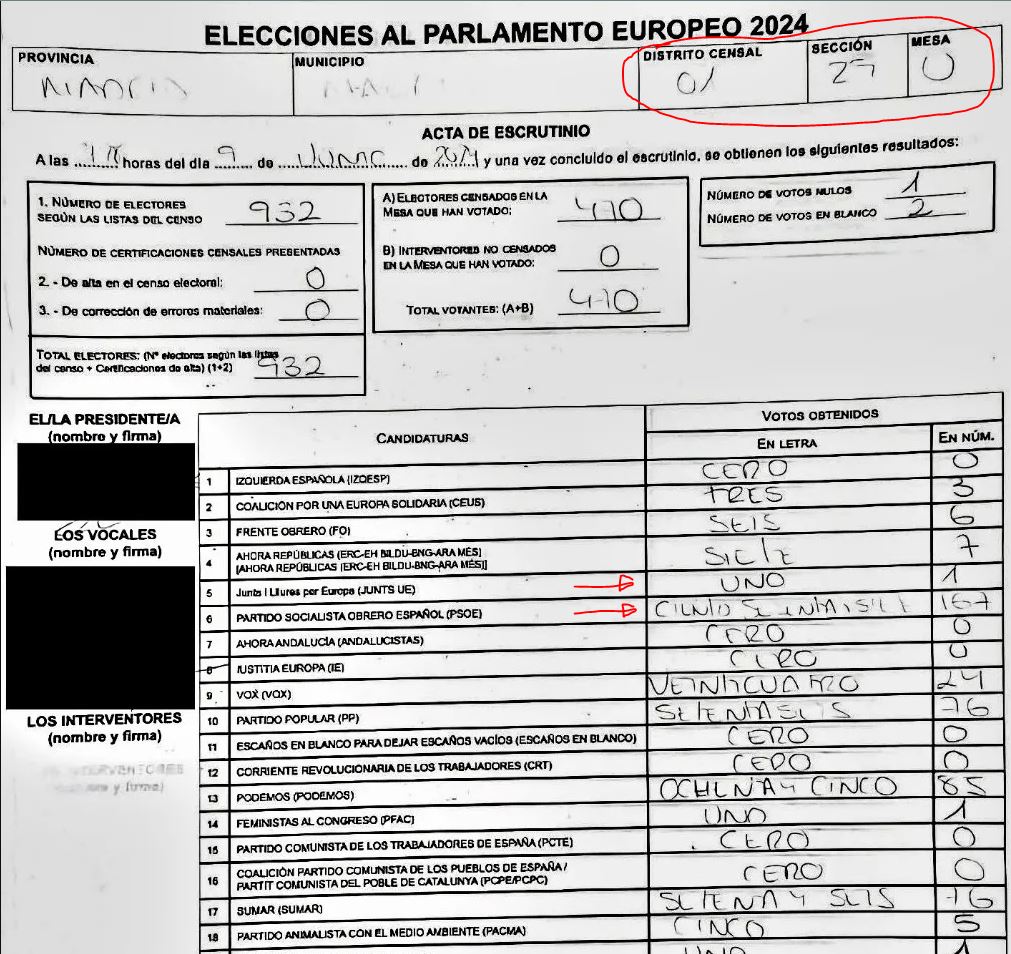 ELECCIONES AL PARLAMENTO EUROPEO 2024
PROVINCIA
MUNICIPIO
DISTRITO CENSAL 01
SECCIÓN
MESA U
ACTA DE ESCRUTINIO
A las horas del día 9 de de y una vez concluido el escrutinio, se obtienen los siguientes resultados:
1. NÚMERO DE ELECTORES
SEGÚN LAS LISTAS DEL CENSO 932
NÚMERO DE CERTIFICACIONES CENSALES PRESENTADAS
2. - De alta en el censo electoral: 0
3. - De corrección de errores materiales: 0
TOTAL ELECTORES: (Nº electores según las listas
del censo + Certificaciones de alta) (1+2) 932
A) ELECTORES CENSADOS EN LA
MESA QUE HAN VOTADO: 470
B) INTERVENTORES NO CENSADOS
EN LA MESA QUE HAN VOTADO: 0
TOTAL VOTANTES: (A+B) 470
NÚMERO DE VOTOS NULOS 1
NÚMERO DE VOTOS EN BLANCO 2
EL/LA PRESIDENTE/A
(nombre y firma)
LOS VOCALES
(nombre y firma)
LOS INTERVENTORES
(nombre y firma)
CANDIDATURAS
VOTOS OBTENIDOS
EN LETRA
EN NÚM.
1 IZQUIERDA ESPAÑOLA (IZQESP) CERO 0
2 COALICIÓN POR UNA EUROPA SOLIDARIA (CEUS) TRES 3
3 FRENTE OBRERO (FO) SEIS 6
4 AHORA REPÚBLICAS (ERC-EH BILDU-BNG-ARA MÉS)
[AHORA REPÚBLICAS (ERC-EH BILDU-BNG-ARA MÉS)] SIETE 7
5 Junts i Lliures per Europa (JUNTS UE) UNO 1
6 PARTIDO SOCIALISTA OBRERO ESPAÑOL (PSOE) 167
7 AHORA ANDALUCÍA (ANDALUCISTAS) CERO 0
8 IUSTITIA EUROPA (IE) CERO 0
9 VOX (VOX) VEINTICUATRO 24
10 PARTIDO POPULAR (PP) SETENTASEIS 76
11 ESCAÑOS EN BLANCO PARA DEJAR ESCAÑOS VACÍOS (ESCAÑOS EN BLANCO) CERO 0
12 CORRIENTE REVOLUCIONARIA DE LOS TRABAJADORES (CRT) CERO 0
13 PODEMOS (PODEMOS) OCHENA Y CINCO 85
14 FEMINISTAS AL CONGRESO (PFAC) UNO 1
15 PARTIDO COMUNISTA DE LOS TRABAJADORES DE ESPAÑA (PCTE) CERO 0
16 COALICIÓN PARTIDO COMUNISTA DE LOS PUEBLOS DE ESPAÑA /
PARTIT COMUNISTA DEL POBLE DE CATALUNYA (PCPE/PCPC) CERO 0
17 SUMAR (SUMAR) SETENA Y SEIS 76
18 PARTIDO ANIMALISTA CON EL MEDIO AMBIENTE (PACMA) CINCO 5